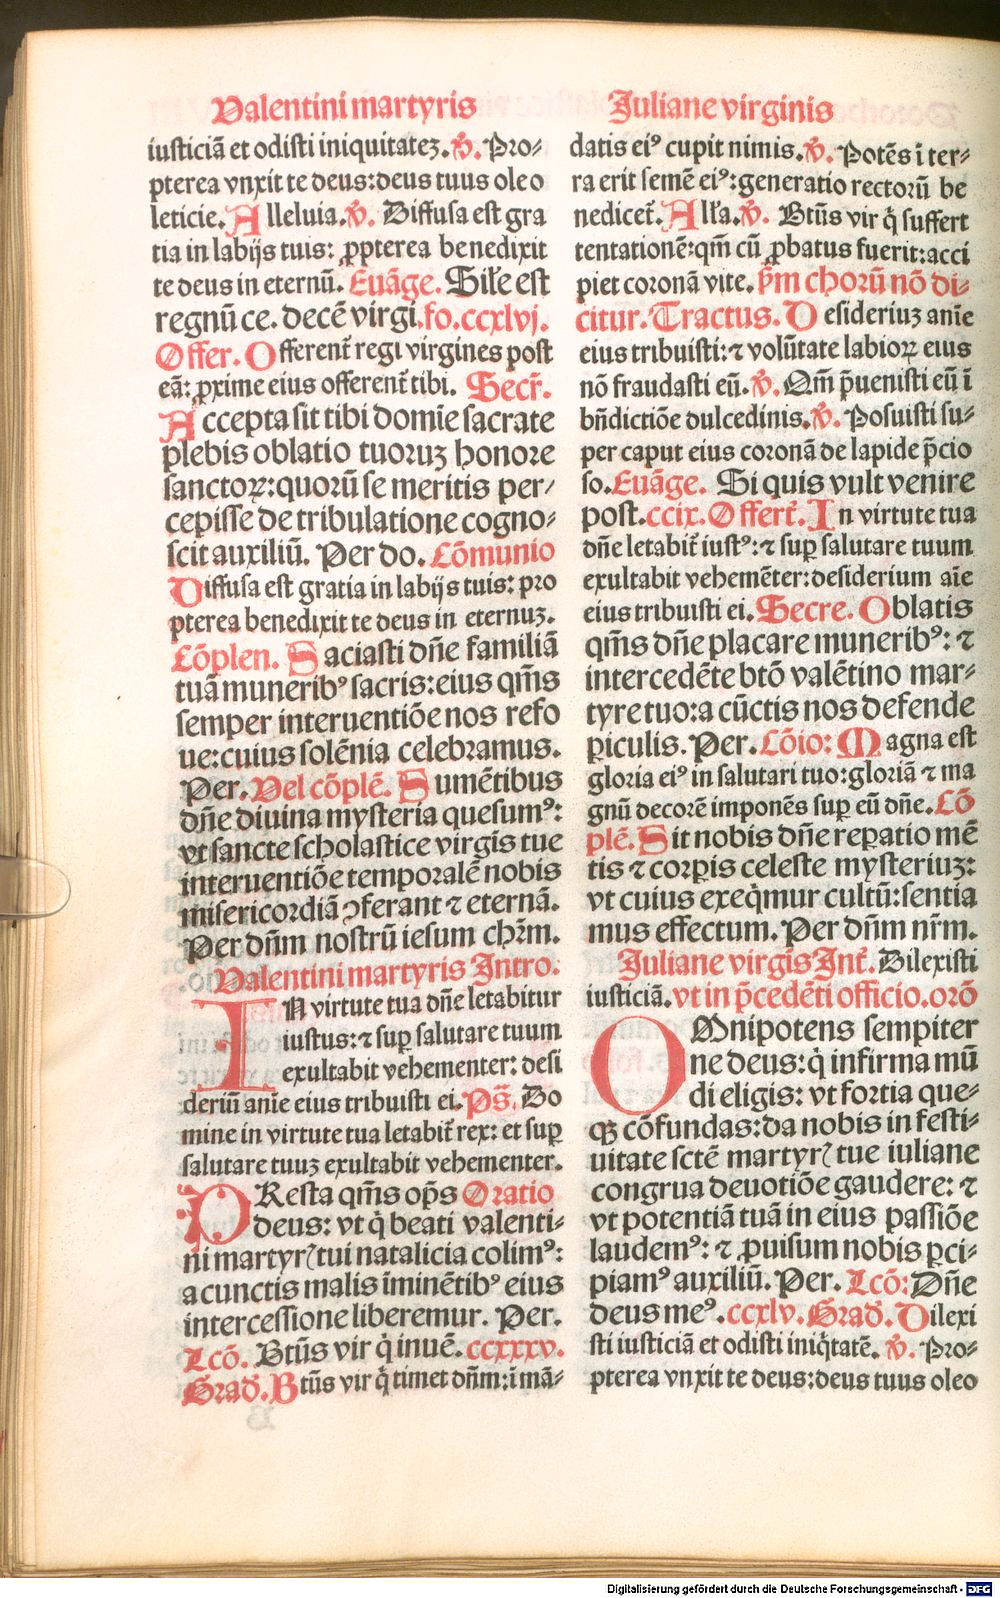 Valentini martyris
iusticiā et odisti iniquitatez. ℣. Pro⸗
pterea vnxit te deus: deus tuus oleo
leticie. Alleluia. ℣. Diffusa est gra
tia in labijs tuis: ꝓpterea benedixit
te deus in eternū. Euāge. Sil'e est
regnū ce. decē virgi. fo. ccxlvj.
Offer. Offerent̄ regi virgines post
eā: ꝓxime eius offerent̄ tibi. Secr̄.
Accepta sit tibi domīe sacrate
plebis oblatio tuoruz honore
sanctoꝝ: quorū se meritis per⸗
cepisse de tribulatione cogno⸗
scit auxiliū. Per do. Cōmunio
Diffusa est gratia in labijs tuis: pro
pterea benedixit te deus in eternuz.
Cōplen. Saciasti dn̄e familiā
tuā munerib⁹ sacris: eius qm̄s
semper interuentiōe nos refo
ue: cuius solēnia celebramus.
Per. Vel cōplē. Sumētibus
dn̄e diuina mysteria quesum⁹:
vt sancte scholastice virgīs tue
interuentiōe temporalē nobis
misericordiā ꝯferant ⁊ eternā.
Per dn̄m nostrū iesum chr̄m.
Valentini martyris Intro.
IN virtute tua dn̄e letabitur
iustus: ⁊ suꝑ salutare tuum
exultabit vehementer: desi
deriū anīe eius tribuisti ei. Ps̄. Do
mine in virtute tua letabit̄ rex: et suꝑ
salutare tuuz exultabit vehementer.
PResta qm̄s op̄s Oratio
deus: vt q̇ beati valenti⸗
ni martyrꝭ tui natalicia colim⁹:
a cunctis malis īminētib⁹ eius
intercessione liberemur. Per.
Lcō. Bt̄us vir q̇ inuē. ccxxxv.
Grad̄. Bt̄us vir q̇ timet dn̄m: ī mā⸗
Juliane virginis
datis ei⁹ cupit nimis. ℣. Potēs ī ter⸗
ra erit semē ei⁹: generatio rectorū be
nedicet̄. All'a. ℣. Bt̄us vir q̇ suffert
tentationē: qm̄ cū ꝓbatus fuerit: acci
piet coronā vite. p̄m chorū nō di⸗
citur. Tractus. Desideriuz anīe
eius tribuisti: ⁊ volūtate labioꝝ eius
nō fraudasti eū. ℣. Qm̄ p̄uenisti eū ī
bn̄dictiōe dulcedinis. ℣. Posuisti su⸗
per caput eius coronā de lapide p̄cio
so. Euāge. Si quis vult venire
post. ccix. Offert̄. In virtute tua
dn̄e letabit̄ iust⁹: ⁊ suꝑ salutare tuum
exultabit vehemēter: desiderium aīe
eius tribuisti ei. Secre. Oblatis
qm̄s dn̄e placare munerib⁹: ⁊
intercedēte btō valētino mar⸗
tyre tuo: a cūctis nos defende
ꝑiculis. Per. Cōio: Magna est
gloria ei⁹ in salutari tuo: gloriā ⁊ ma
gnū decorē imponēs suꝑ eū dn̄e. Cō
plē. Sit nobis dn̄e reꝑatio mē
tis ⁊ corꝑis celeste mysteriuz:
vt cuius exeq̇mur cultū: sentia
mus effectum. Per dn̄m nr̄m.
Juliane virgīs Int̄. Dilexisti
iusticiā. vt in p̄cedēti officio. orō
OMnipotens sempiter
ne deus: q̇ infirma mū
di eligis: vt fortia que⸗
qꝫ cōfundas: da nobis in festi⸗
uitate sctē martyrꝭ tue iuliane
congrua deuotiōe gaudere: ⁊
vt potentiā tuā in eius passiōe
laudem⁹: ⁊ ꝓuisum nobis ꝑci⸗
piam⁹ auxiliū. Per. Lcō: Dn̄e
deus me⁹. ccxlv. Grad̄. Dilexi
sti iusticiā et odisti iniq̇tatē. ℣. Pro⸗
pterea vnxit te deus: deus tuus oleo
Digitalisierung gefördert durch die Deutsche Forschungsgemeinschaft - DFG